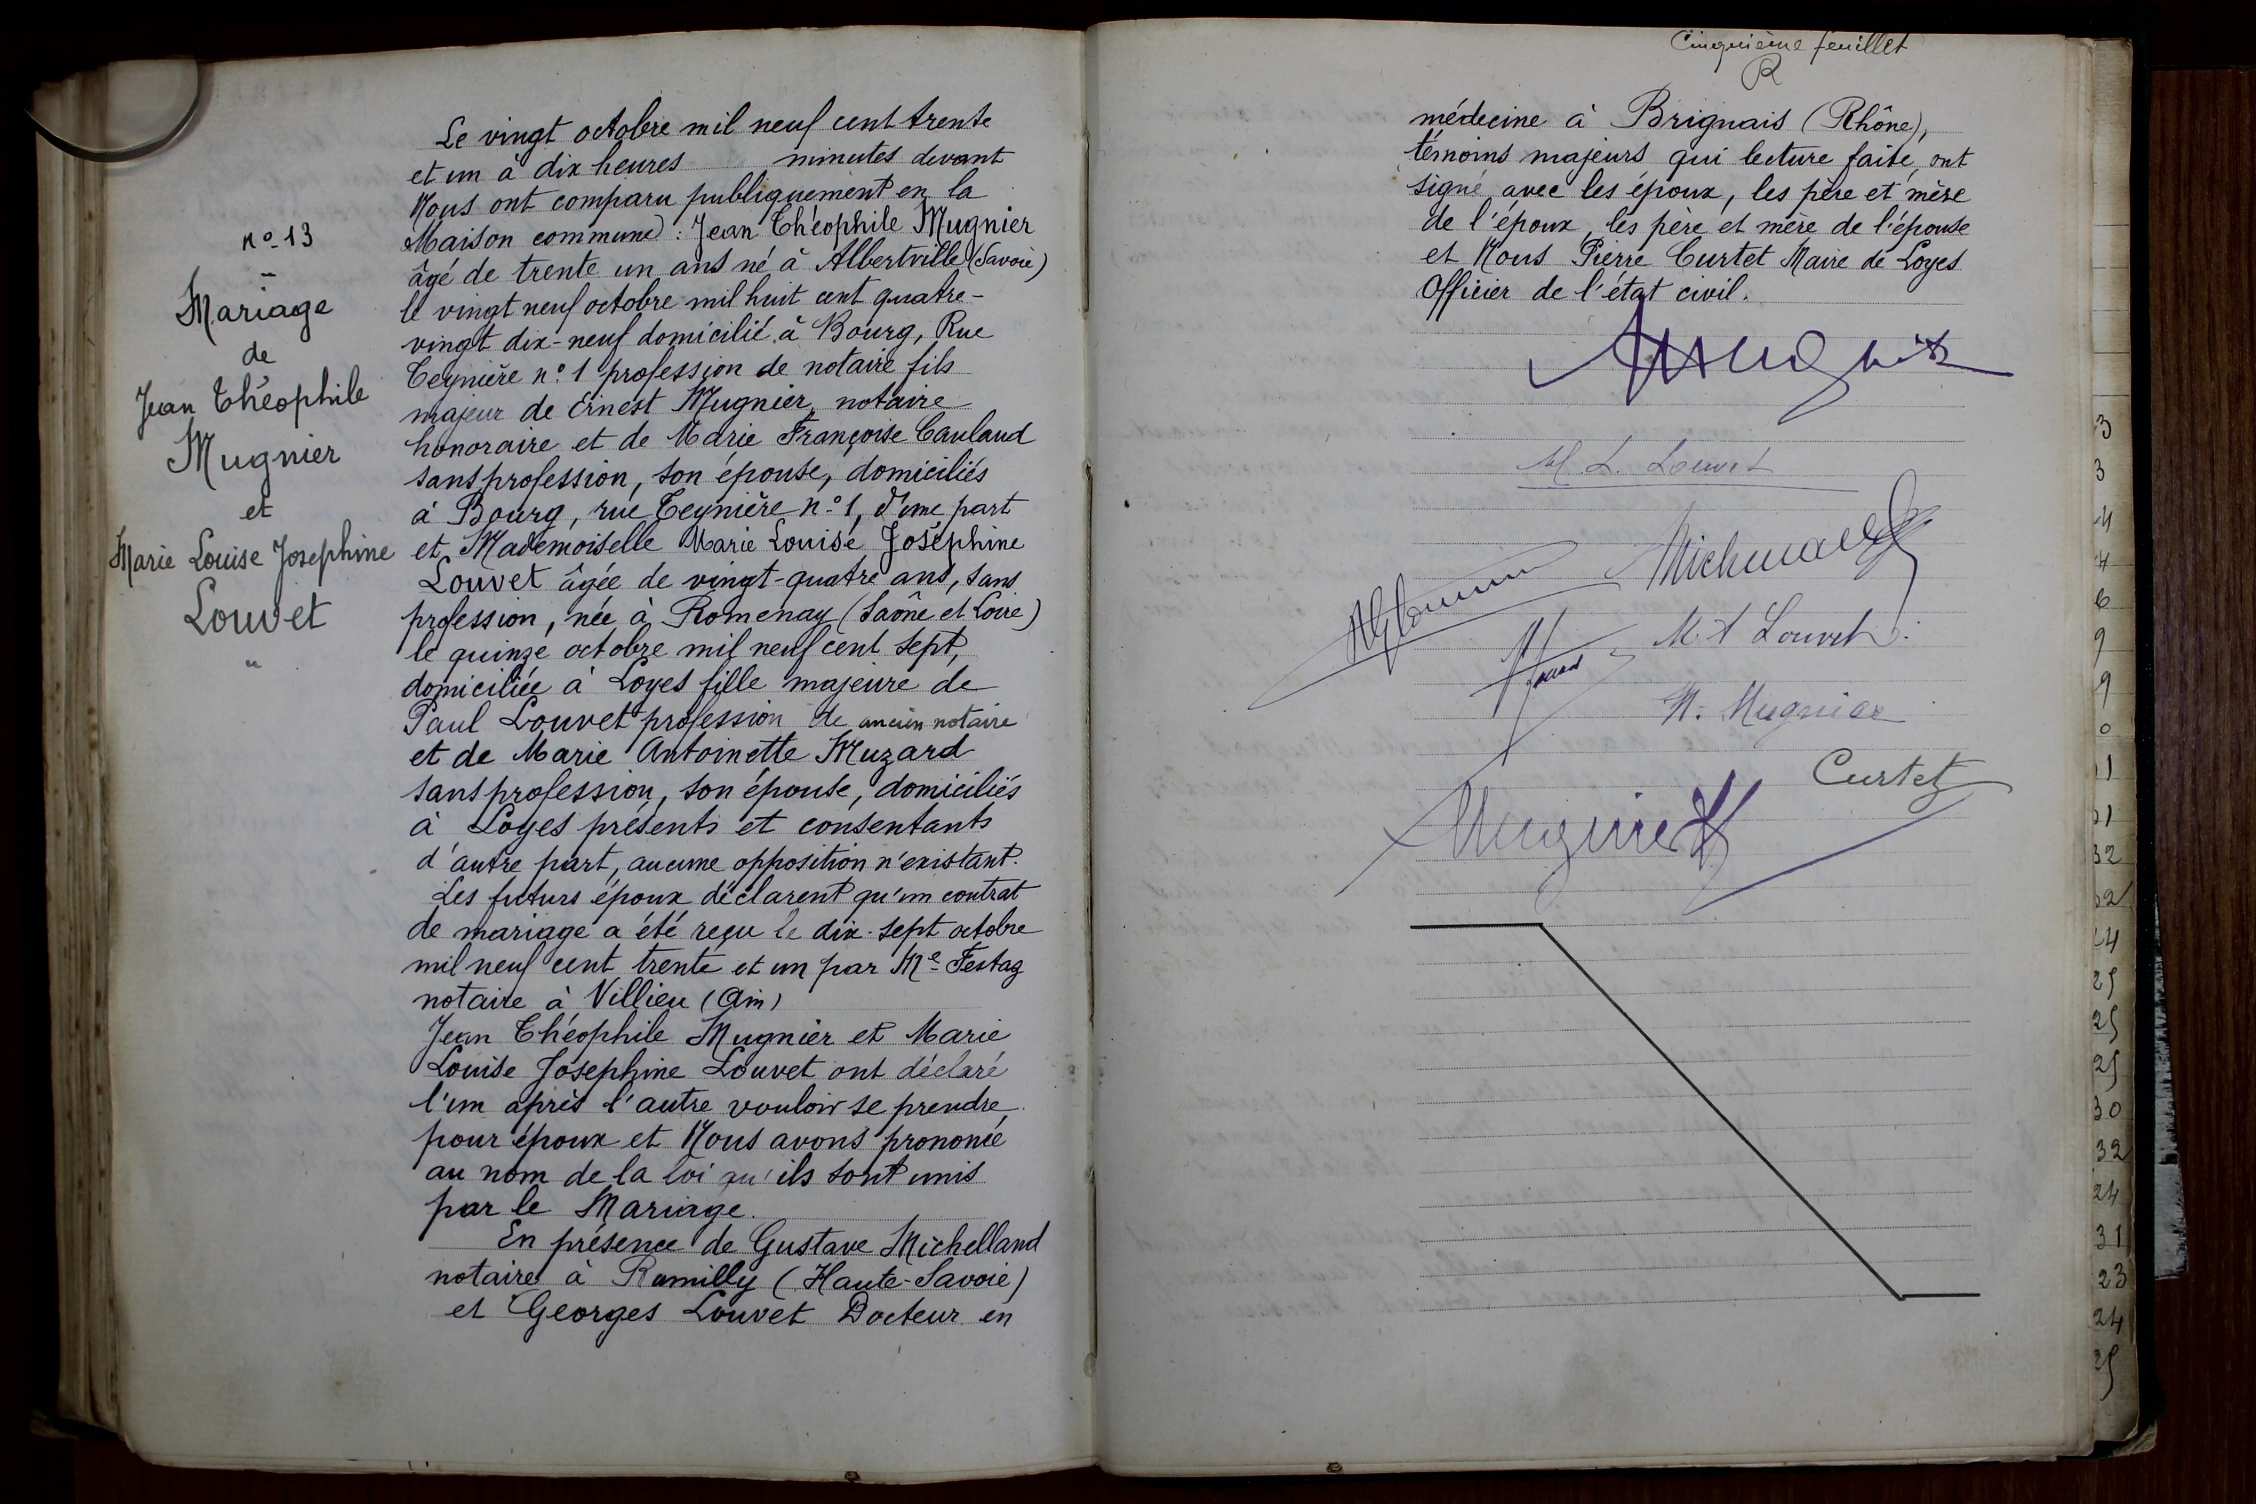 n° 13
Mariage
de
Jean Théophile
Mugnier
et
Marie Louise Josephine
Louvet
Le vingt octobre mil neuf cent trente
et un à dix heures minutes devant
Nous ont comparu publiquement en la
Maison commune : Jean Théophile Mugnier
âgé de trente un ans né à Albertville (Savoie)
le vingt neuf octobre mil huit cent quatre-
vingt dix-neuf domicilié à Bourg, Rue
Teynière n° 1 profession de notaire fils
majeur de Ernest Mugnier, notaire
honoraire et de Marie Françoise Cauland
sans profession, son épouse, domiciliés
à Bourg, rue Teynière n° 1, d'une part
et Mademoiselle Marie Louise Joséphine
Louvet âgée de vingt-quatre ans, sans
profession, née à Romenay (Saône et Loire)
le quinze octobre mil neuf cent sept,
domiciliée à Loyes fille majeure de
Paul Louvet profession de ancien notaire
et de Marie Antoinette Muzard
sans profession, son épouse, domiciliés
à Loyes présents et consentants
d'autre part, aucune opposition n'existant.
Les futurs époux déclarent qu'un contrat
de mariage a été reçu le dix-sept octobre
mil neuf cent trente et un par Me Festaz
notaire à Villieu (Ain)
Jean Théophile Mugnier et Marie
Louise Josephine Louvet ont déclaré
l'un après l'autre vouloir se prendre
pour époux et Nous avons prononcé
au nom de la loi qu'ils sont unis
par le Mariage.
En présence de Gustave Michelland
notaire à Rumilly (Haute-Savoie)
et Georges Louvet Docteur en
Cinquième feuillet
R
médecine à Brignais (Rhône),
témoins majeurs qui lecture faite, ont
signé avec les époux, les père et mère
de l'époux, les père et mère de l'épouse
et Nous Pierre Curtet Maire de Loyes
Officier de l'état civil.
Mugnier
M. L. Louvet
Michelland
M. A Louvet
M. Mugnier
Curtet
Mugnier
3
3
4
4
6
9
9
0
11
32
24
25
25
25
30
32
24
31
23
24
25